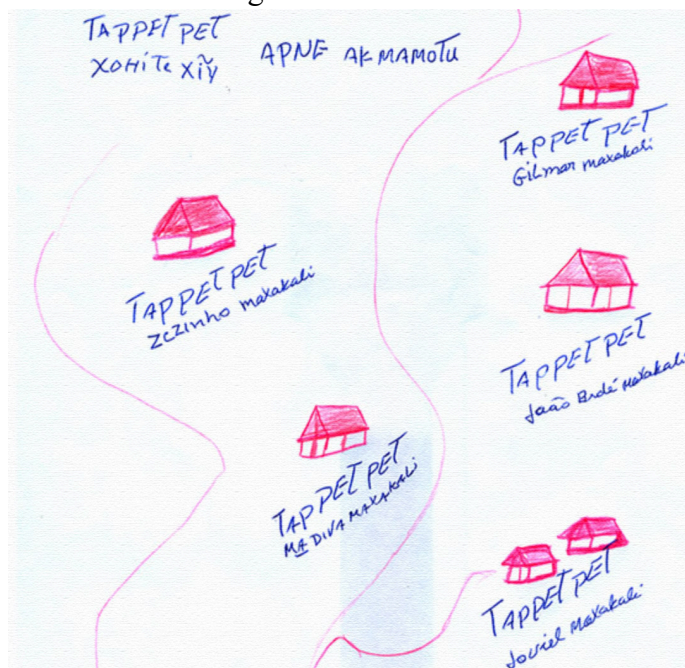 TAPPET PET
XOHITE XĨY
APNE AK MAMOTU
TAPPET PET
Gilmar maxakali
TAPPET PET
Zezinho maxakali
TAPPET PET
João Bidé maxakali
TAPPET PET
MADIVA MAXAKALI
TAPPET PET
Joviel Maxakali